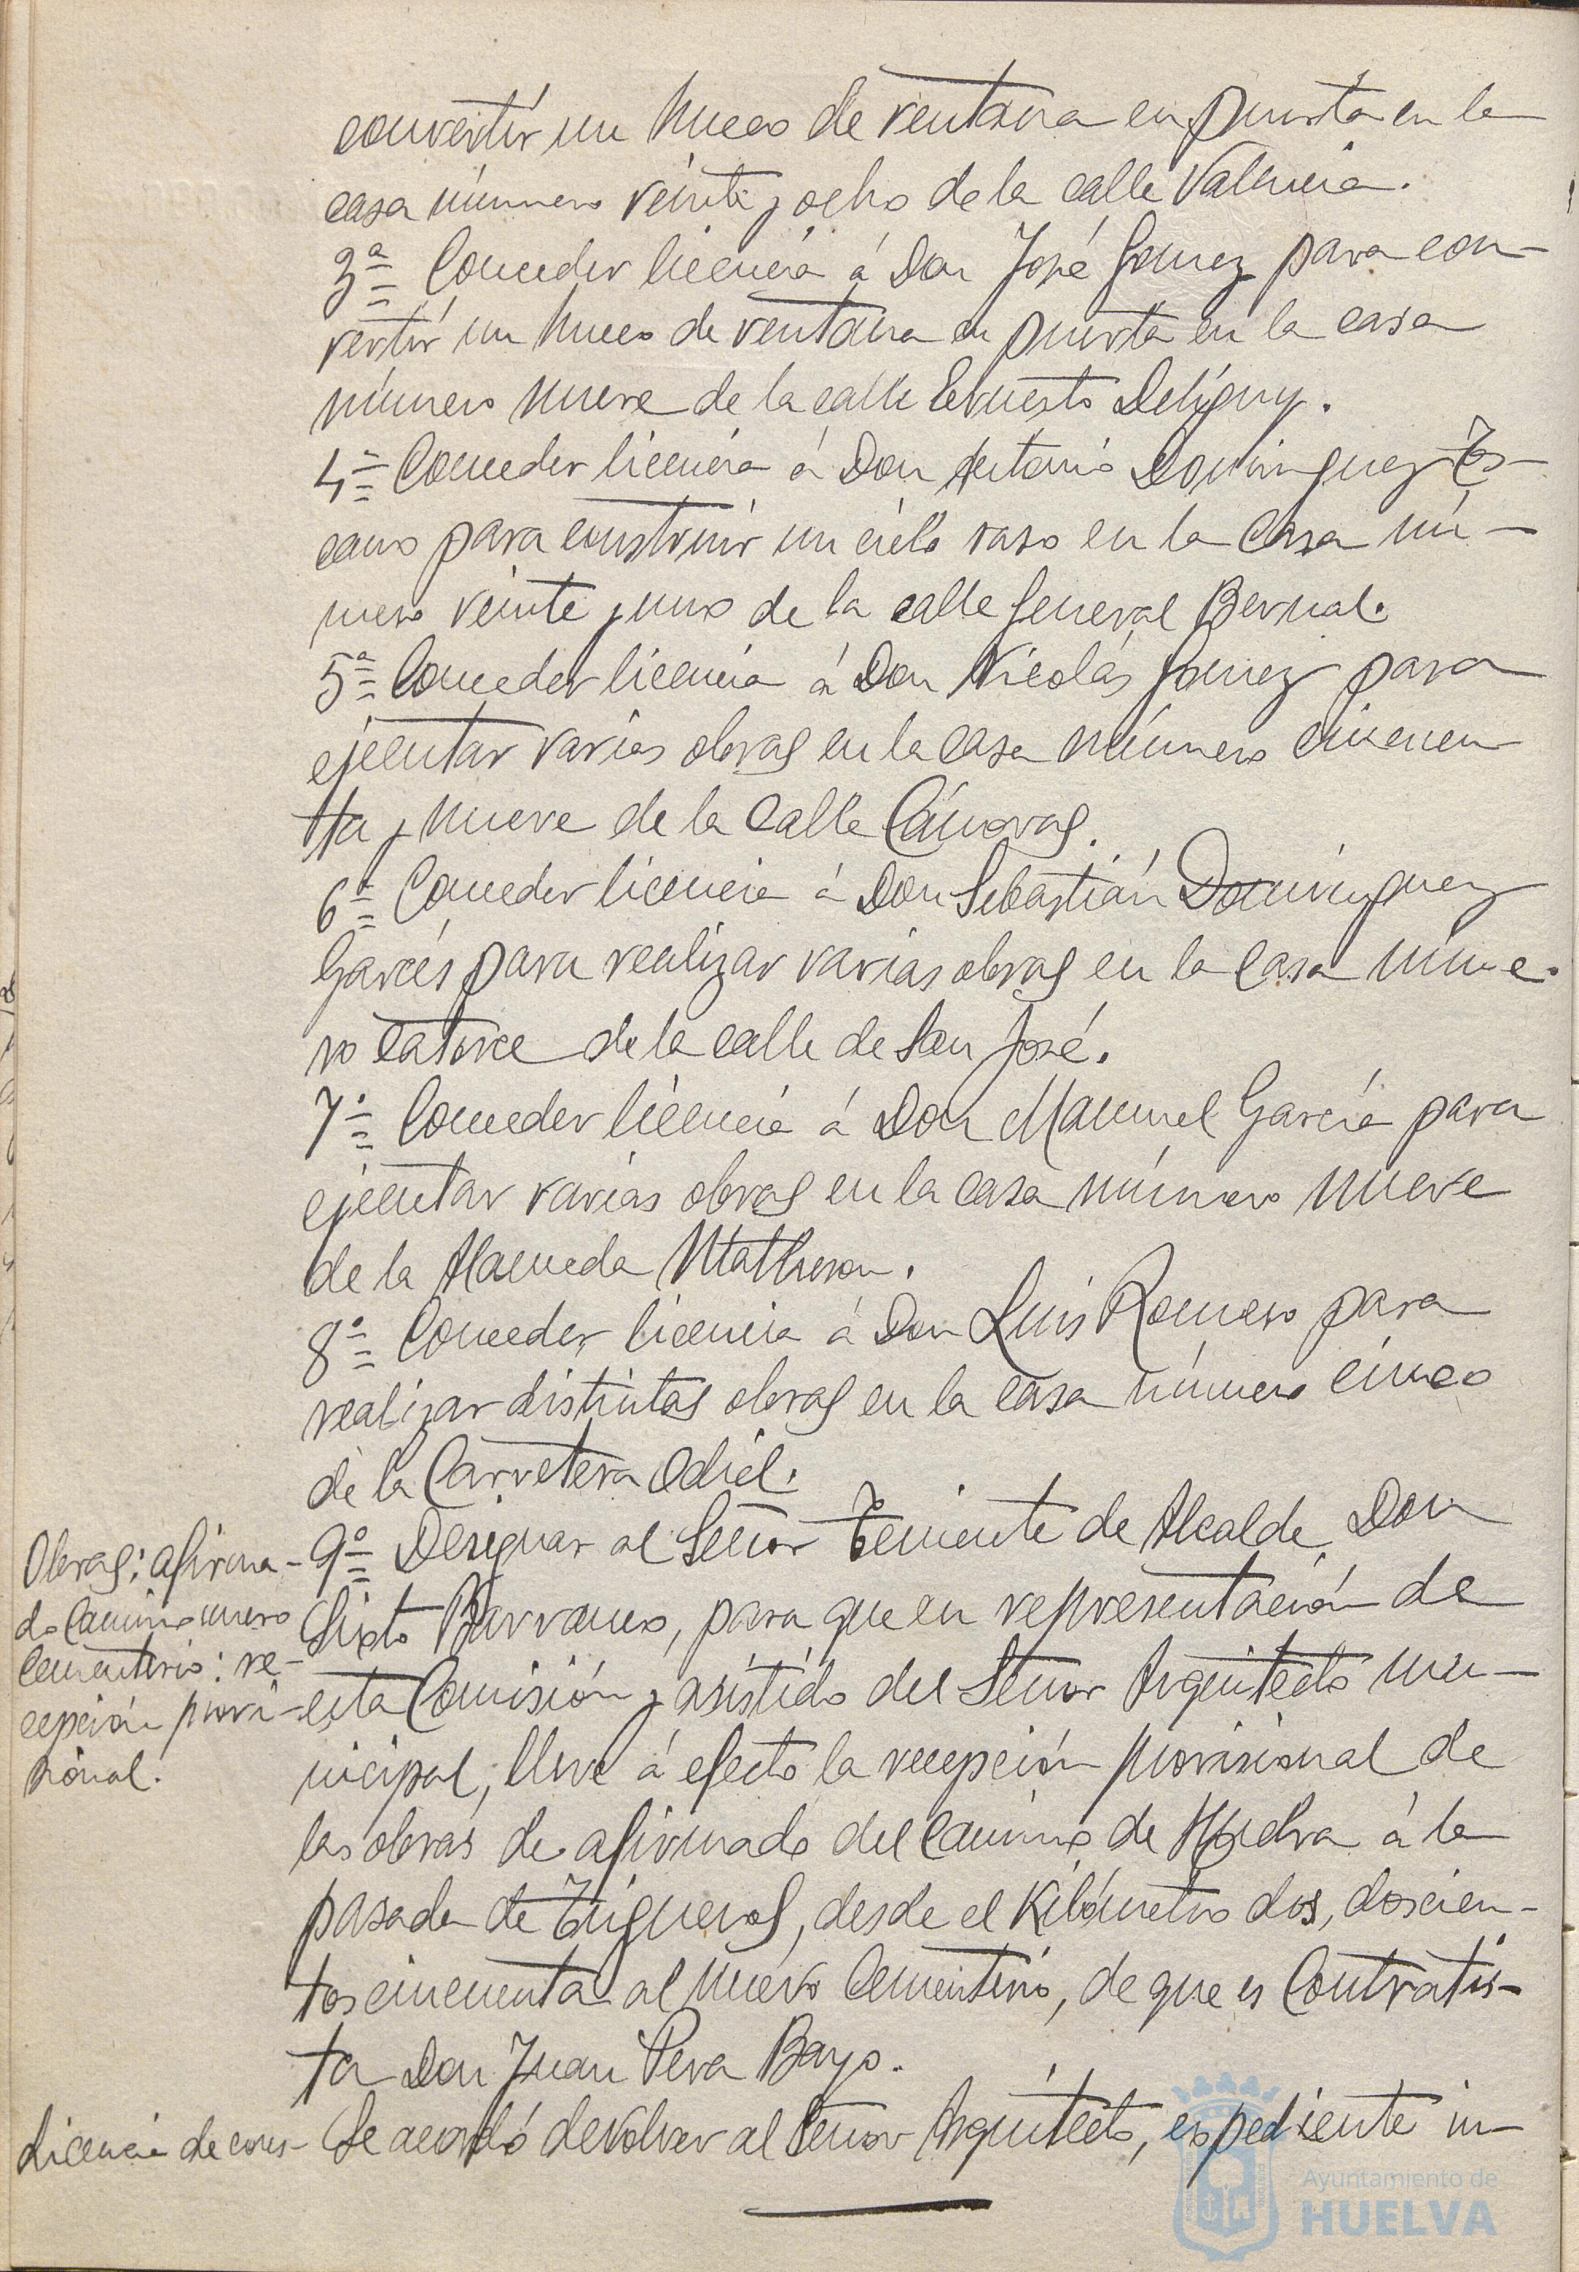 convertir un hueco de ventana en puerta en la
casa número veinte y ocho de la calle Valencia.
3ª Conceder licencia á Don José Gomez para con-
vertir un hueco de ventana en puerta en la casa
número nueve de la calle Ernesto Deligny.
4ª Conceder licencia á Don Antonio Dominguez Es-
cano para construir un cielo raso en la casa nú-
mero veinte y uno de la calle General Bernal.
5ª Conceder licencia á Don Nicolás Gomez para
ejecutar varias obras en la casa número cincuen-
ta y nueve de la calle Cánovas.
6ª Conceder licencia á Don Sebastián Dominguez
Garcés para realizar varias obras en la casa núme-
ro catorce de la calle de San José.
7º Conceder licencia á Don Manuel García para
ejecutar varias obras en la casa número nueve
de la Alameda Matheson.
8º Conceder licencia á Don Luis Romero para
realizar distintas obras en la casa número cinco
de la Carretera Odiel.
Obras: afirma-
do Camino nuevo
Cementerio: re-
cepción provi-
sional.
9º Designar al Señor Teniente de Alcalde Don
Sixto Barranco, para que en representación de
esta Comisión y asistido del Señor Arquitecto mu-
nicipal, lleve á efecto la recepción provisional de
las obras de afirmado del Camino de Huelva á la
pasada de Trigueros, desde el Kilómetro dos, doscien-
tos cincuenta al nuevo Cementerio, de que es Contratis-
ta Don Juan Vera Bayo.
Licencia de cons-
Se acordó devolver al Señor Arquitecto, expediente in-
Ayuntamiento de
HUELVA